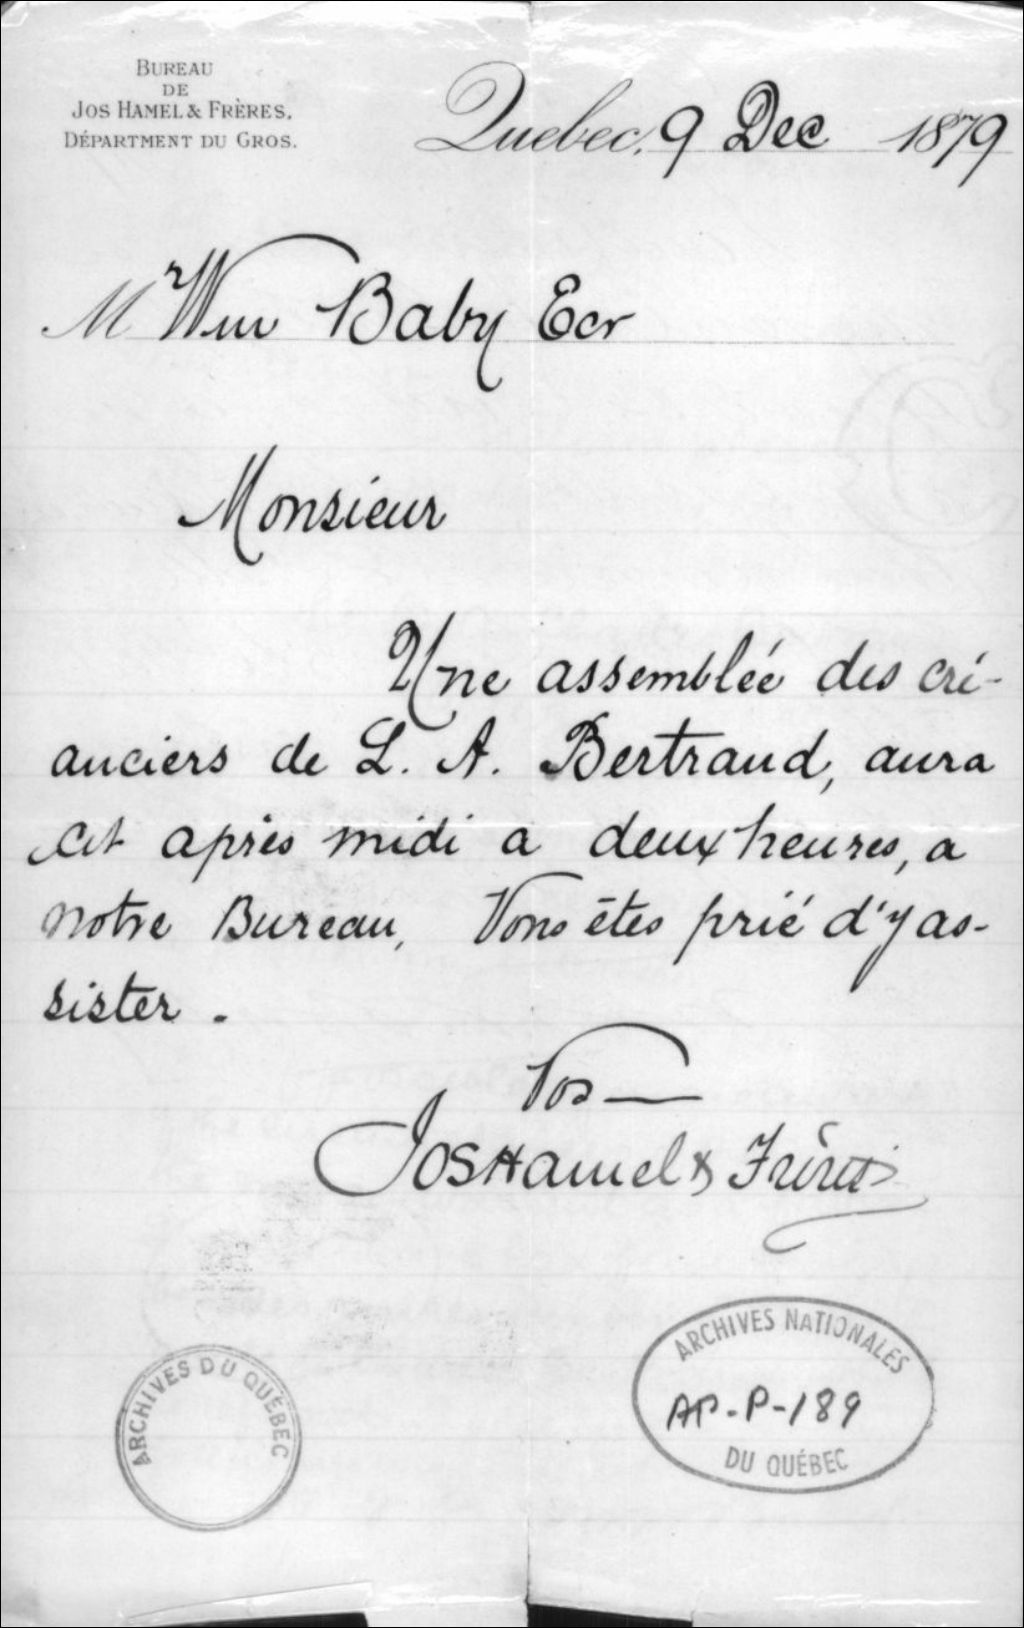 BUREAU
DE
JOS HAMEL & FRÈRES.
DÉPARTMENT DU GROS.
Quebec, 9 Dec 1879
Mr Wm Baby Ecr
Monsieur
Une assemblée des cré-
anciers de L. A. Bertrand, aura
cet après midi a deux heures, a
notre Bureau, Vous êtes prié d'y as-
sister.
Vos
Jos Hamel & Frères
ARCHIVES DU QUÉBEC
ARCHIVES NATIONALES
AP-P-189
DU QUÉBEC